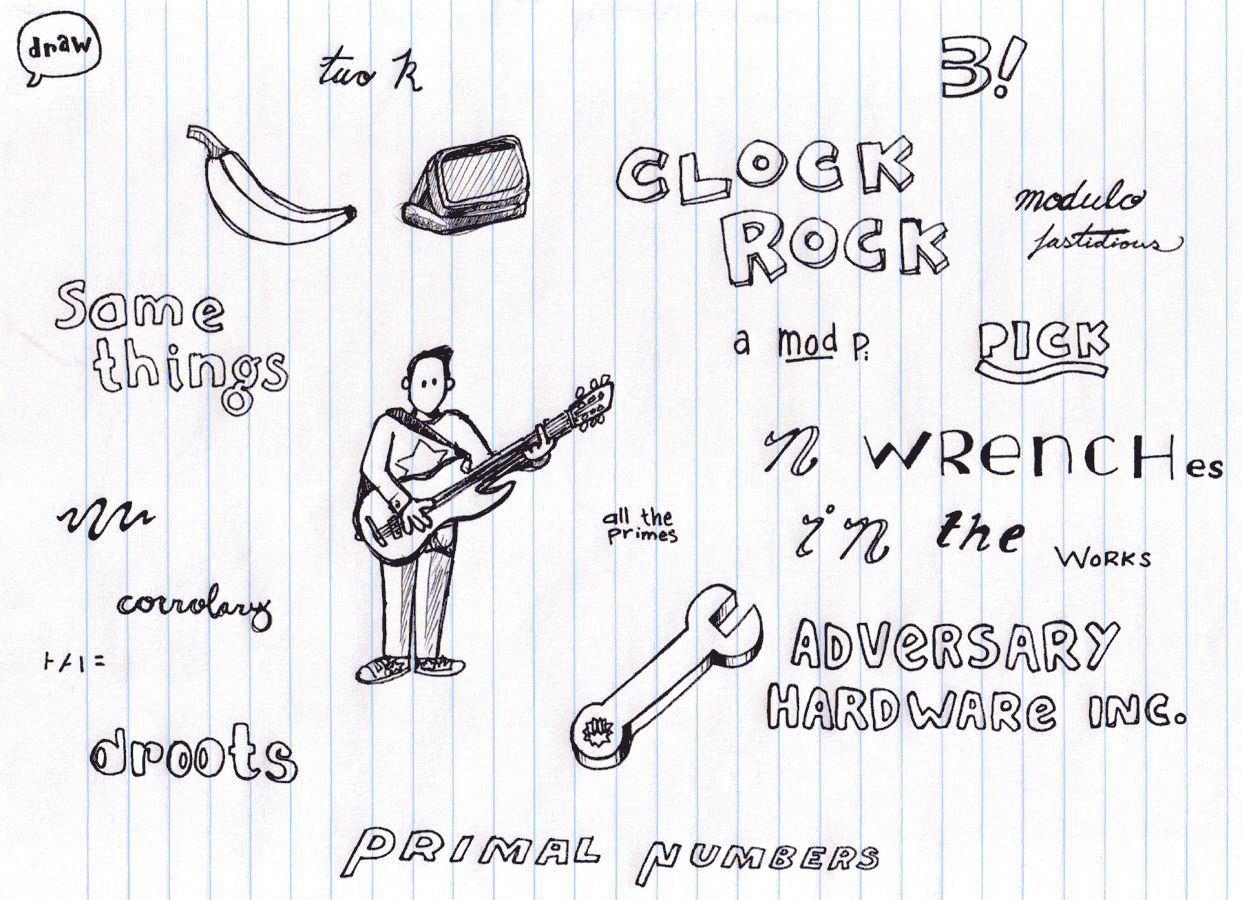 draw
two k
3!
CLOCK
ROCK
modulo
fastidious
Same
things
a mod p.
PICK
n WRENCHes
all the
primes
in the WORKS
corrolary
ADVERSARY
HARDWARE INC.
droots
PRIMAL NUMBERS